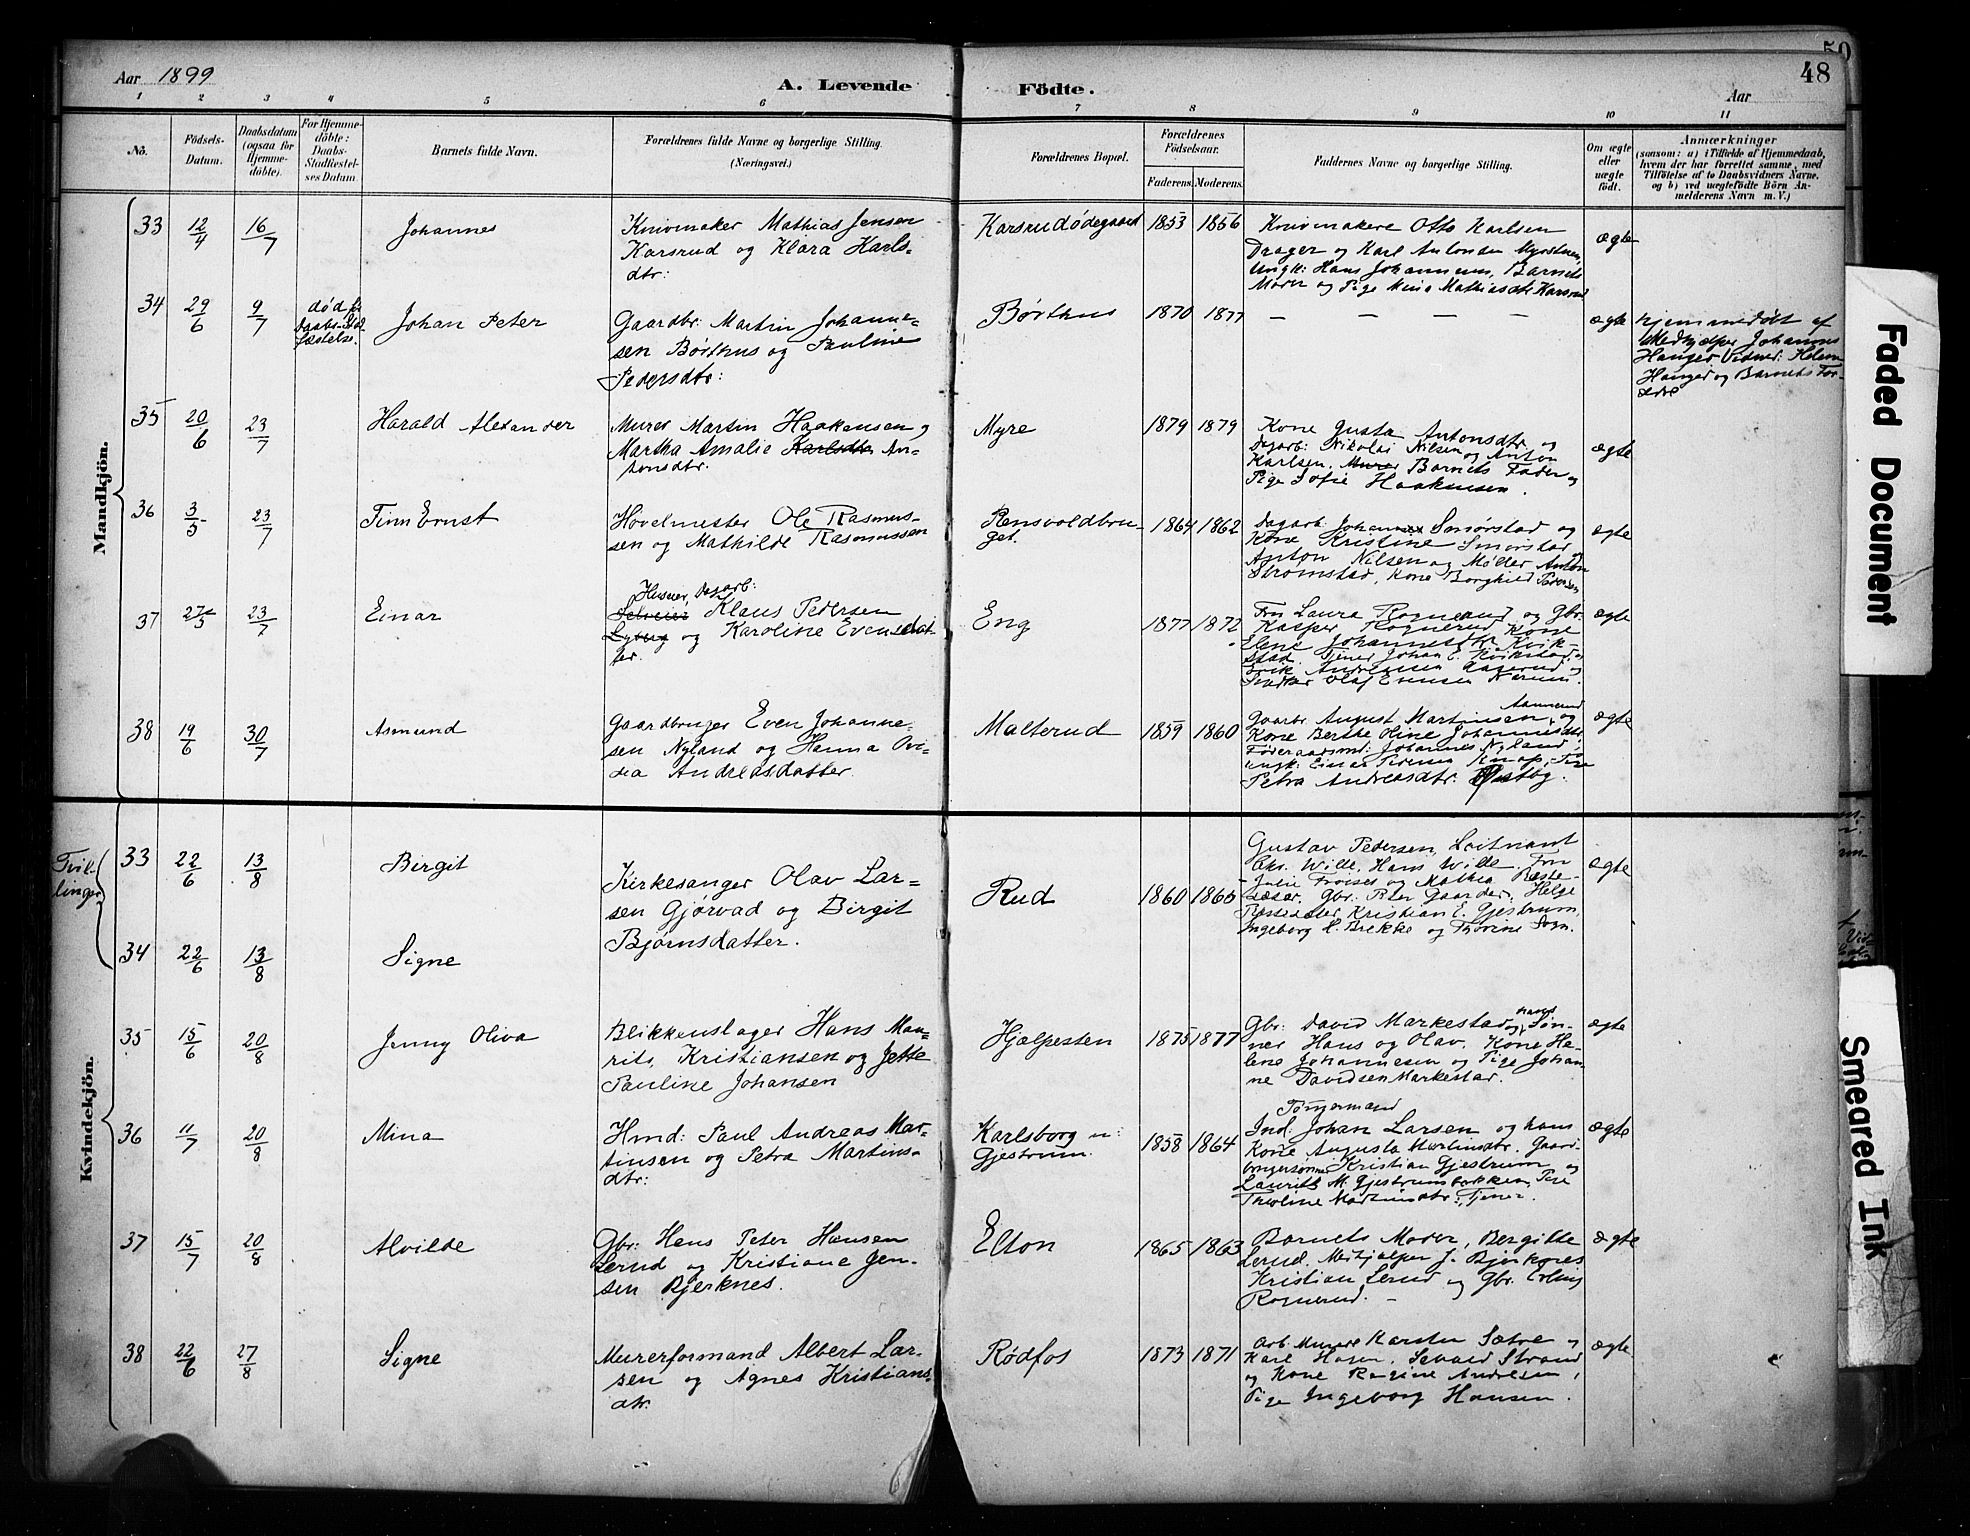 Aar 1899
A. Levende Födte.
48
50
Aar
1 2 3 4 5 6 7 8 9 10 11
No.
Födsels-Datum.
Daabsdatum (ogsaa for Hjemme-döbte).
For Hjemme-döbte: Daabs-Stadfæstel-ses Datum.
Barnets fulde Navn.
Forældrenes fulde Navne og borgerlige Stilling.
(Næringsvei.)
Forældrenes Bopæl.
Forældrenes Födselsaar.
Faderens. Moderens.
Faddernes Navne og borgerlige Stilling.
Om ægte eller uægte födt.
Anmærkninger
(saasom: a) i Tilfælde af Hjemmedaab,
hvem der har forrettet samme, med
Tilföielse af to Daabsvidners Navne,
og b) ved uægtefödte Börn An-
melderens Navn m. V.)
Mandkjön.
33 12/4 16/7 Johannes
Knivmaker Mathias Jensen
Karsrud og Klara Karls-
dtr:
Karsrudødegaard 1853 1856
Knivmakere Otto Karlsen
Drager og Karl Antonsen
Ungk: Hans Johannesen, Barnets
Moder og Pige Mina Mathiasdtr Karsrud
ægte
34 29/6 9/7 død før Daabs-Stad-fæstelse.
Johan Peter
Gaardbr: Martin Johanne-
sen Børthus og Pauline
Pedersdtr:
Børthus 1870 1877
— — — — —
ægte
Hjemmedøbt af
Medhjælper Johannes
Hanger Vidner: Helene
Hanger og Barnets For-
ældre
35 20/6 23/7 Harald Alexander
Murer Martin Haakensen og
Martha Amalie Karlsdtr An-
tonsdtr.
Myre 1879 1879
Kone Gusta Antonsdtr og
Dagarb: Nikolai Nilsen og Anton
Karlsen, Murer Barnets Fader og
Pige Sofie Haakensen.
ægte
36 3/5 23/7 Finn Ernst
Hovelmester Ole Rasmus-
sen og Mathilde Rasmussen
Rensvoldbru-
get. 1864 1862
Dagarb. Johannes Smørstad og
Kone Kristine Smørstad
Anton Nilsen og Møller Anton
Strømstad, Kone Borghild Pedersen
ægte
37 27/5 23/7 Einar
Husmer, Dagarb:
Selveier Klaus Pedersen
Lyberg og Karoline Evensdat-
ter.
Eng 1877 1872
Fru Laura Rognerud og Gbr.
Kasper Rognerud Kone
Elene Johannesdtr Kvik-
stad. Tjener Johan E. Kvikstad,
Erik Andreassen Aaserud,
Olaf Evensen
ægte
38 19/6 30/7 Asmund
Gaardbruger Even Johanne-
sen Nyland og Hanna Ovi-
dia Andreasdatter.
Malterud 1859 1860
Gaarbr August Martinsen, og
Kone Berthe Oline Johannesdtr
Føderaadsmd: Johannes Nyland,
Ungk: Einar Pedersen Knap, Pige
Petra Andreasdtr. Østby.
ægte
Kvindekjön.
Tvil-
linger
33 22/6 13/8 Birgit
34 22/6 13/8 Signe
Kirkesanger Olav Lar-
sen Gjørvad og Birgit
Bjørnsdatter.
Rud 1860 1865
Gustav Pedersen, Loitnant
Chr. Wille, Hans Wille, Fru
Julie Froises og Mathea Ræste-
sæter, Gbr. Peter Gaarder, Helge
Ræstesæter, Kristian E. Gjestrum,
Ingeborg E. Brekke og Thorine Sogn.
ægte
35 15/6 20/8 Jenny Oliva
Blikkenslager Hans Mau-
rits Kristiansen og Jette
Pauline Johansen
Hjælpesten 1875 1877
Gbr: David Markestad og hans Søn-
ner Hans og Olav, Kone He-
lene Johannesen og Pige Johan-
ne Davidsen Markestad.
ægte
36 11/7 20/8 Mina
Hmd: Paul Andreas Mar-
tinsen og Petra Martins-
dtr:
Karlsborg u:
Gjestrum. 1858 1864
Tømmermand
Ind. Johan Larsen og hans
Kone Augusta Martinsdtr. Gaard-
brugersønner Kristian Gjestrum og
Laurits M. Gjestrumsbakken, Pige
Theoline Martinsdtr: Tjener.
ægte
37 15/7 20/8 Alvilde
Gbr: Hans Peter Hansen
Lerud og Kristiane Jen-
sen Bjerknes.
Elton 1865 1863
Barnets Moder, Bergitte
Lerud. Medhjælper J. Bjerknes
Kristian Lerud og Gbr. Erling
Rognerud. —
ægte
38 22/6 27/8 Signe
Murerformand Albert Lar-
sen og Agnes Kristians-
dtr.
Rødfos 1873 1871
Arb. Murer Karsten Sætre og
Karl Hagen, Sevald Strand
og Kone Regine Andresen,
Pige Ingeborg Hansen.
ægte
Faded Document
Smeared Ink